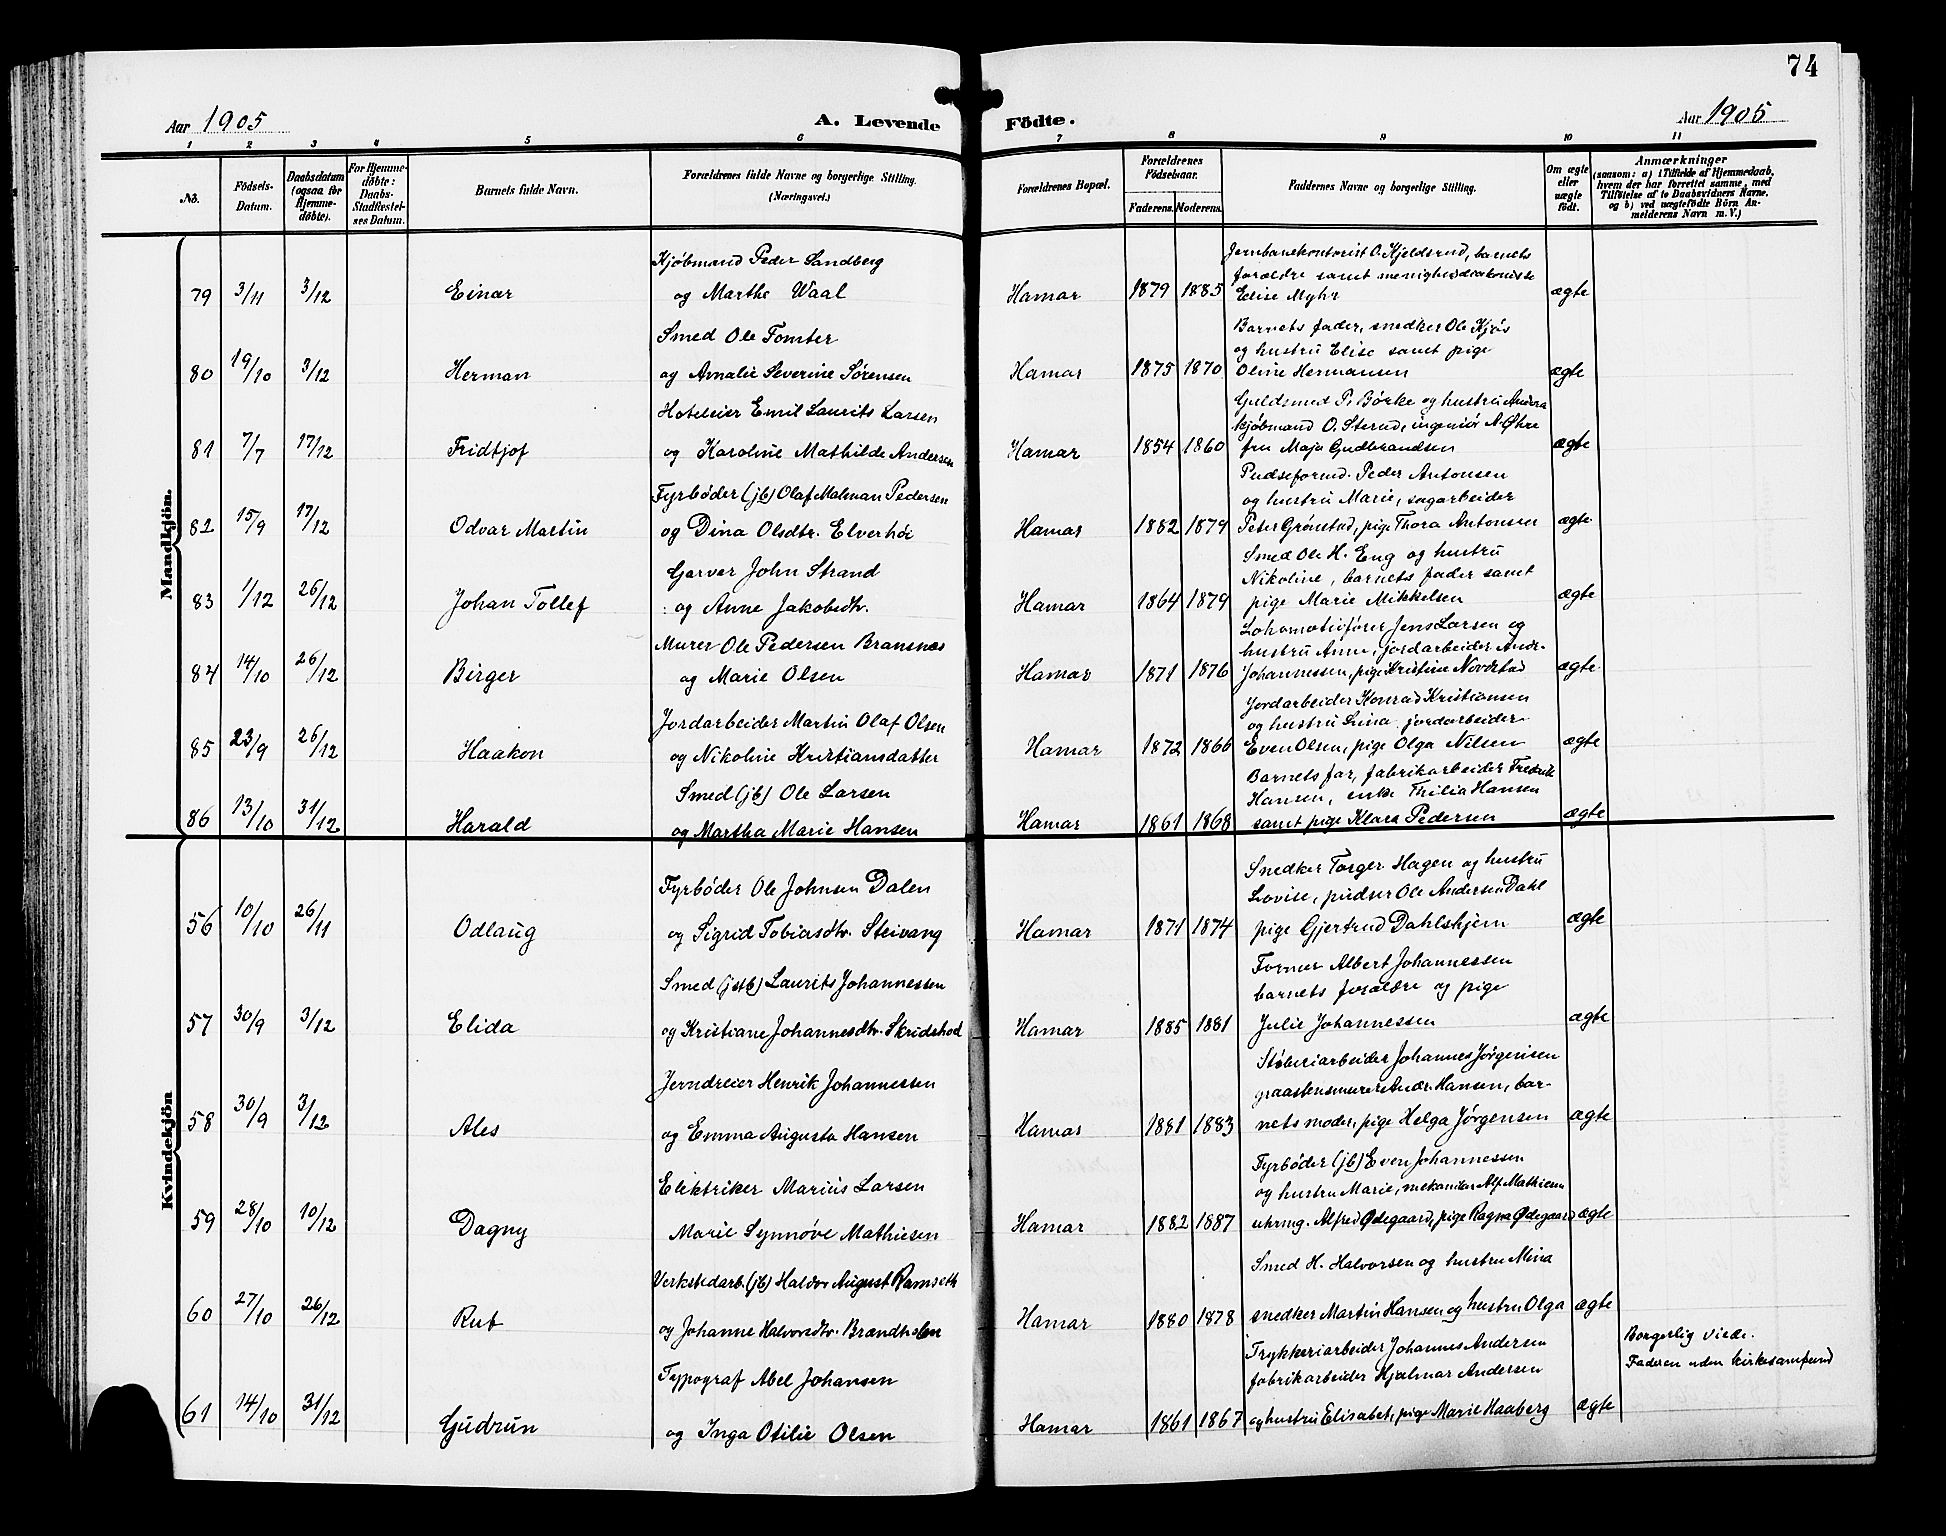 74
Aar 1905
A. Levende Födte.
Aar 1905
1 2 3 4 5 6 7 8 9 10 11
No.
Födsels-Datum.
Daabsdatum (ogsaa for Hjemme-döbte).
For Hjemme-döbte: Daabs-Stadfæstel-ses Datum.
Barnets fulde Navn.
Forældrenes fulde Navne og borgerlige Stilling. (Næringsvei.)
Forældrenes Bopæl.
Forældrenes Födselsaar.
Faderens. Moderens.
Faddernes Navne og borgerlige Stilling.
Om ægte eller uægte født.
Anmærkninger
(saasom: a) i Tilfælde af Hjemmedaab,
hvem der har forrettet samme, med
Tilføielse af to Daabsvidners Navne,
og b) ved uægtefödte Börn An-
melderens Navn m. V.)
Mandkjön.
Kjøbmand Peder Sandberg
Jernbanekontorist O. Kjeldsrud, barnets
forældre samt menighedsdiakonisse
79 3/11 3/12 Einar og Marthe Waal Hamar 1879 1885 Elise Myhr ægte
Smed Ole Tomter
Barnets fader, snedker Ole Kjøs
og hustru Elise samt pige
80 19/10 3/12 Herman og Amalie Severine Sørensen Hamar 1875 1870 Oline Hermansen ægte
Hotelseier Emil Laurits Larsen
Guldsmed P. Børke og hustru Andrea
kjøbmand O. Sterud, ingeniør N. Øhre
81 7/7 17/12 Fridtjof og Karoline Mathilde Andersen Hamar 1854 1860 fru Maja Gudbrandsen ægte
Fyrbøder (jb) Olaf Malman Pedersen
Pudseformd. Peder Antonsen
og hustru Marie, sagarbeider
82 15/9 17/12 Odvar Martin og Dina Olsdtr. Elverhøi Hamar 1882 1879 Peter Grønstad, pige Thora Antonsen ægte
Garver John Strand
Smed Ole H. Eng og hustru
Nikoline, barnets fader samt
83 1/12 26/12 Johan Tollef og Anne Jakobsdtr. Hamar 1864 1879 pige Marie Mikkelsen ægte
Murer Ole Pedersen Bransnæs
Lokomotivfører Jens Larsen og
hustru Anne, jordarbeider Andr.
84 14/10 26/12 Birger og Marie Olsen Hamar 1871 1876 Johannessen, pige Kristine Nordstad ægte
Jordarbeider Martin Olaf Olsen
Jordarbeider Konrad Kristiansen
og hustru Lina, jordarbeider
85 23/9 26/12 Haakon og Nikoline Kristiansdatter Hamar 1872 1866 Even Olsen, pige Olga Nilsen ægte
Smed (jb) Ole Larsen
Barnets far, fabrikarbeider Fredrik
Hansen, enke Thilia Hansen
86 13/10 31/12 Harald og Martha Marie Hansen Hamar 1861 1868 samt pige Klara Pedersen ægte
Kvindekjön
Fyrbøder Ole Johnsen Dalen
Snedker Torger Hagen og hustru
Lovise, pudser Ole Andersen Dahl
56 10/10 26/11 Odlaug og Sigrid Tobiasdtr. Steivang Hamar 1871 1874 pige Gjertrud Dahlshjem ægte
Smed (jstb) Laurits Johannessen
Former Albert Johannessen
barnets forældre og pige
57 30/9 3/12 Elida og Kristiane Johannesdtr. Skridshod Hamar 1885 1881 Julie Johannessen ægte
Jerndreier Henrik Johannessen
Støberiarbeider Johannes Jørgensen
graastensmurer Andr. Hansen, bar-
58 30/9 3/12 Ales og Emma Augusta Hansen Hamar 1881 1883 nets moder, pige Helga Jørgensen ægte
Elektriker Marius Larsen
Fyrbøder (jb) Even Johannessen
og hustru Marie, mekaniker Alf Mathiesen
59 28/10 10/12 Dagny Marie Synnøve Mathiesen Hamar 1882 1887 uhrmg. Alfred Ødegaard, pige Ragna Ødegaard ægte
Verkstedarb. (jb) Haldor August Ramseth
Smed H. Halvorsen og hustru Mina
60 27/10 26/12 Rut og Johanne Halvorsdtr. Brændholen Hamar 1880 1878 snedker Martin Hansen og hustru Olga ægte
Typograf Abel Johansen
Trykkeriarbeider Johannes Andersen
fabrikarbeider Hjalmar Andersen
Borgerlig viede.
Faderen uden kirkesamfund
61 14/10 31/12 Gudrun og Inga Otilie Olsen Hamar 1861 1867 og hustru Elisabet, pige Marie Haaberg ægte